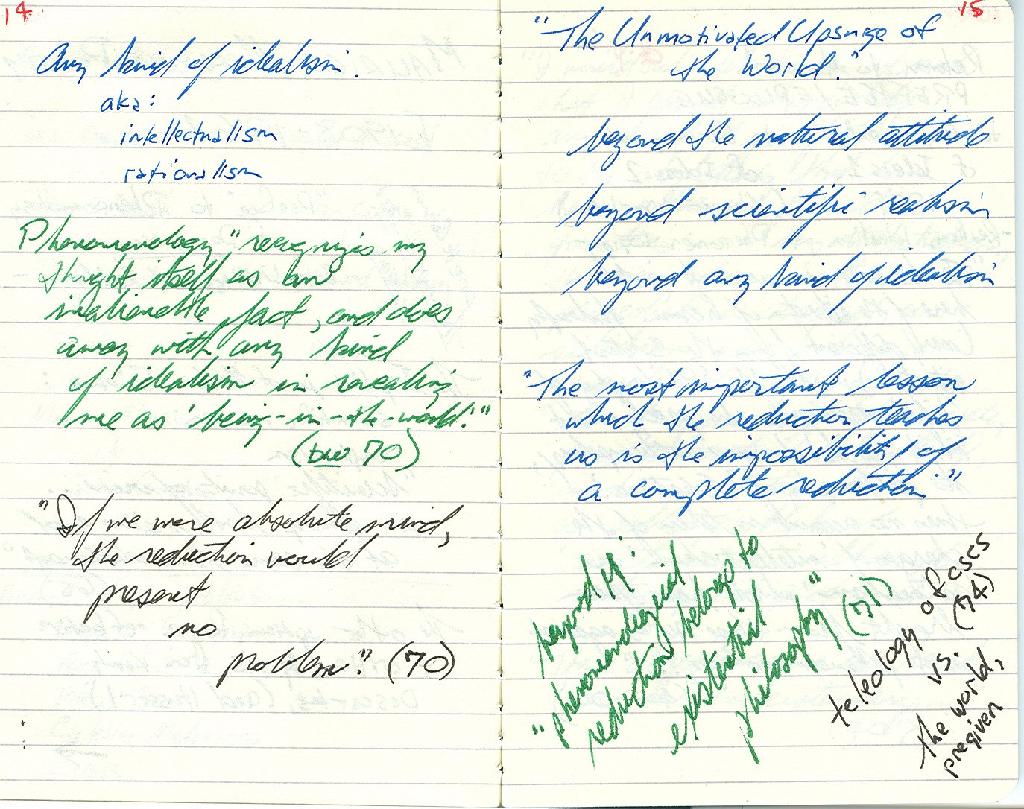 14
any kind of idealism.
aka:
intellectualism
rationalism
Phenomenology "recognizes my
thought itself as an
inalienable fact, and does
away with any kind
of idealism in revealing
me as 'being-in-the-world'."
(BW 70)
"If we were absolute mind,
the reduction would
present
no
problem". (70)
15
"The Unmotivated Upsurge of
the World."
beyond the natural attitude
beyond scientific realism
beyond any kind of idealism
"The most important lesson
which the reduction teaches
us is the impossibility of
a complete reduction"
beyond
"phenomenological
reduction belongs to
existential
philosophy" (71)
teleology of
vs. (74)
the world,
pregiven